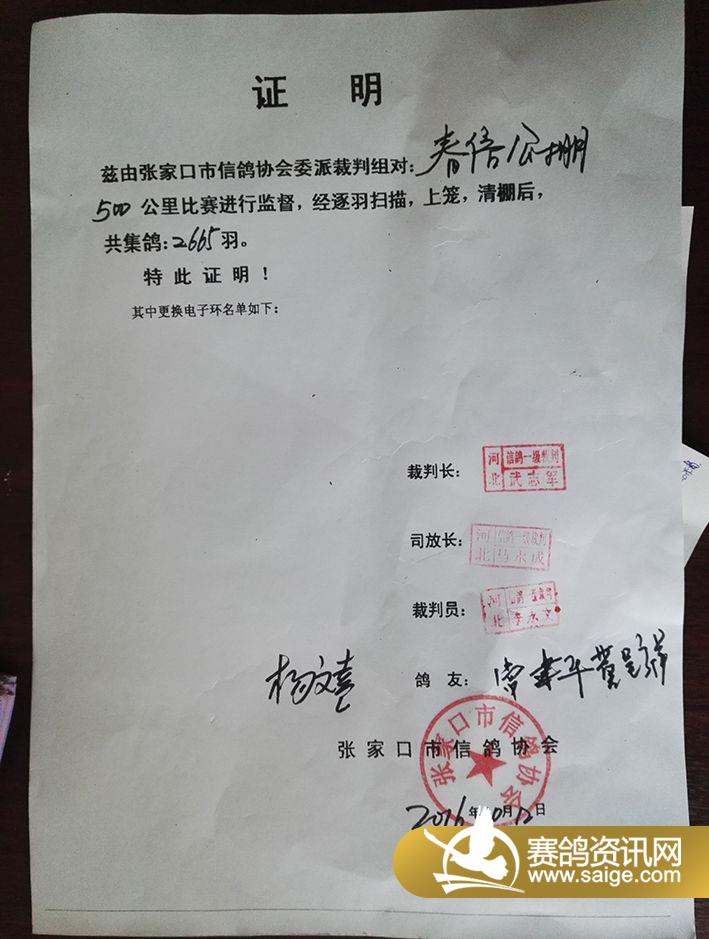 证 明
兹由张家口市信鸽协会委派裁判组对：春信公棚
500公里比赛进行监督，经逐羽扫描，上笼，清棚后，
共集鸽：2665羽。
特此证明！
其中更换电子环名单如下：
裁判长：
河北 信鸽一级裁判 武志军
司放长：
河北 信鸽一级裁判 马永成
裁判员：
河北 李永文
杨文喜 鸽 友：
张家口市信鸽协会
张家口市信鸽协会
2016年10月12日
赛鸽资讯网
www.saige.com